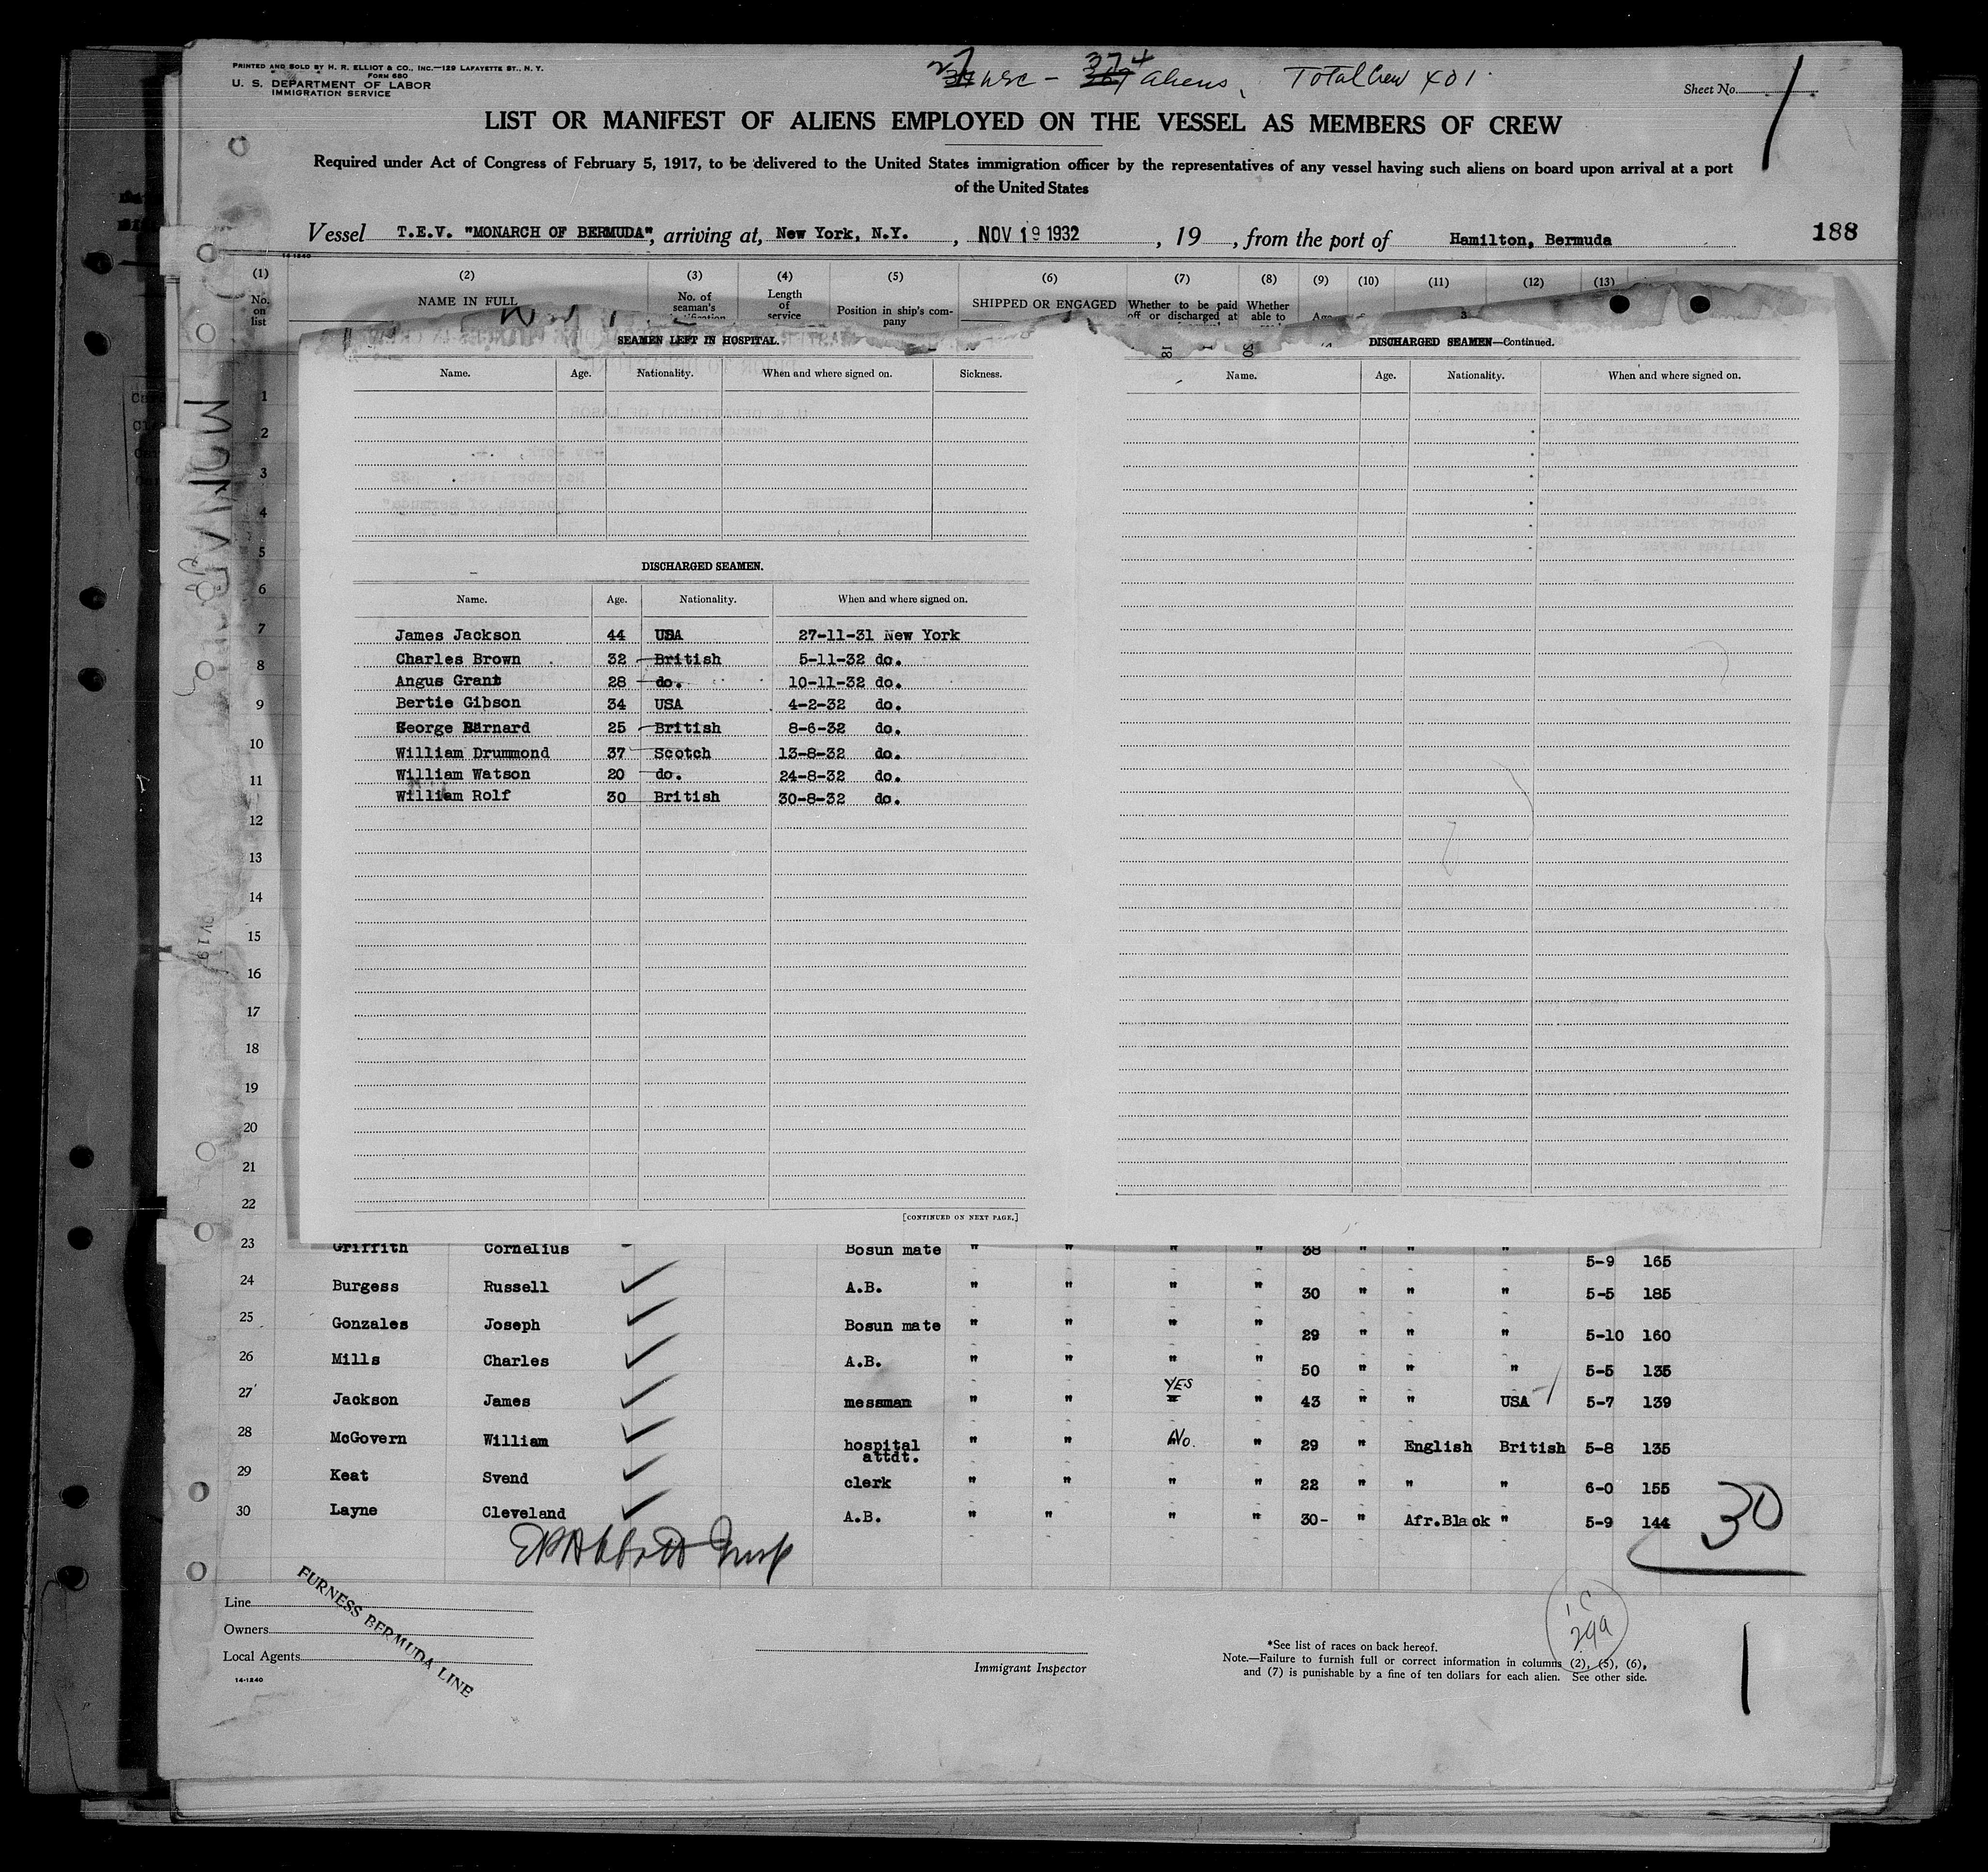 PRINTED AND SOLD BY H. R. ELLIOT & CO., INC.—129 LAFAYETTE ST., N. Y.
FORM 680
U. S. DEPARTMENT OF LABOR
IMMIGRATION SERVICE
27 USC - 374 aliens, Total Crew 401
Sheet No. 1
LIST OR MANIFEST OF ALIENS EMPLOYED ON THE VESSEL AS MEMBERS OF CREW
Required under Act of Congress of February 5, 1917, to be delivered to the United States immigration officer by the representatives of any vessel having such aliens on board upon arrival at a port
of the United States
Vessel T.E.V. "MONARCH OF BERMUDA", arriving at, New York, N.Y., NOV 19 1932, 19 , from the port of Hamilton, Bermuda
188
14-1240
(1) (2) (3) (4) (5) (6) (7) (8) (9) (10) (11) (12) (13)
No. on list NAME IN FULL No. of seaman's Length of service Position in ship's company SHIPPED OR ENGAGED Whether to be paid off or discharged at Whether able to
SEAMEN LEFT IN HOSPITAL.
Name. Age. Nationality. When and where signed on. Sickness.
DISCHARGED SEAMEN.
Name. Age. Nationality. When and where signed on.
James Jackson 44 USA 27-11-31 New York
Charles Brown 32 British 5-11-32 do.
Angus Grant 28 do. 10-11-32 do.
Bertie Gibson 34 USA 4-2-32 do.
George Barnard 25 British 8-6-32 do.
William Drummond 37 Scotch 13-8-32 do.
William Watson 20 do. 24-8-32 do.
William Rolf 30 British 30-8-32 do.
[CONTINUED ON NEXT PAGE.]
DISCHARGED SEAMEN—Continued.
Name. Age. Nationality. When and where signed on.
1
2
3
4
5
6
7
8
9
10
11
12
13
14
15
16
17
18
19
20
21
22
23 Griffith Cornelius Bosun mate " " " " 38 " " " 5-9 165
24 Burgess Russell A.B. " " " " 30 " " " 5-5 185
25 Gonzales Joseph Bosun mate " " " " 29 " " " 5-10 160
26 Mills Charles A.B. " " " " 50 " " " 5-5 135
27 Jackson James messman " " YES " 43 " " USA 5-7 139
28 McGovern William hospital attdt. " " No. " 29 " English British 5-8 135
29 Keat Svend clerk " " " " 22 " " " 6-0 155
30 Layne Cleveland A.B. " " " " 30- " Afr.Black " 5-9 144
30
Line
Owners
Local Agents
FURNESS BERMUDA LINE
14-1240
Immigrant Inspector
*See list of races on back hereof.
Note.—Failure to furnish full or correct information in columns (2), (5), (6),
and (7) is punishable by a fine of ten dollars for each alien. See other side.
1